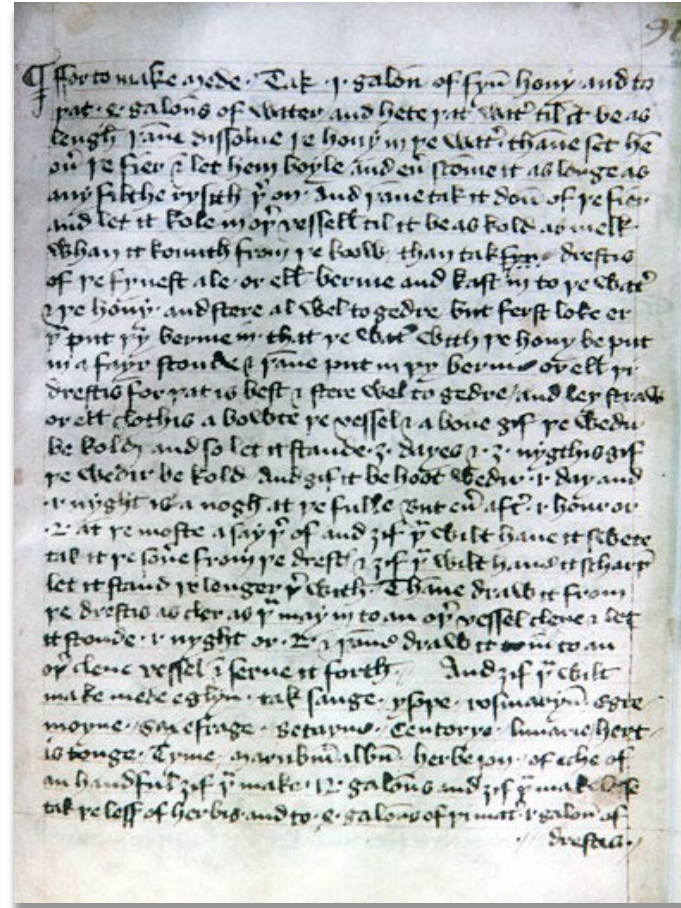 ¶ ffor to make mede. Tak .i. galoun of fyn hony and to
þat .4. galouns of water and hete þat wat' til it be as
lengh þane dissolue þe hony in þe wat'. thane set hē
ou' þe fier & let hem boyle and eu' scome it as longe as
any filthe rysith þ' on. And þane tak it doū of þe fier
and let it kole in oþ' vessell til it be as kold as melk
whan it komith from þe koow. than tak drestis
of þe fynest ale or ell' berme and kast in to þe wat'
& þe hony. and stere al wel to gedre but ferst loke er
þu put þy berme in. that þe wat' with þe hony be put
in a fayr stonde & þane put in þy berme or ell' þi
drestis for þat is best & stere wel to gedre/ and ley straw
or ell' clothis a bowte þe vessel & a boue gif þe wedir
be kold and so let it stande .3. dayes & .3. nygthis gif
þe wedir be kold And gif it be hoot wedir .i. day and
.i. nyght is a nogh at þe fulle But eu' aft' .i. hour or
.2. at þe moste a say þ' of and zif þu wilt haue it swete
tak it þe sone from þe drest' & zif þu wilt haue it scharp
let it stand þe lenger þ' with. Thane draw it from
þe drestis as cler as þu may in to an oþ' vessel clene & let
it stonde .i. nyght or .2. & þane draw it in to an
oþ' clene vessel & serue it forth. And zif þu wilt
make mede eglyn. tak sauge. ysope. rosmaryn. Egre-
moyne. saxefrage. betayne. Centorye. lunarie. hert-
is tonge. Tyme. marubium album. herbe jon. of eche of
an handful zif þu make .12. galouns and zif þu mak lesse
tak þe less of herbis and to .4. galouns of þi mat' .i. galoun of
drestis.